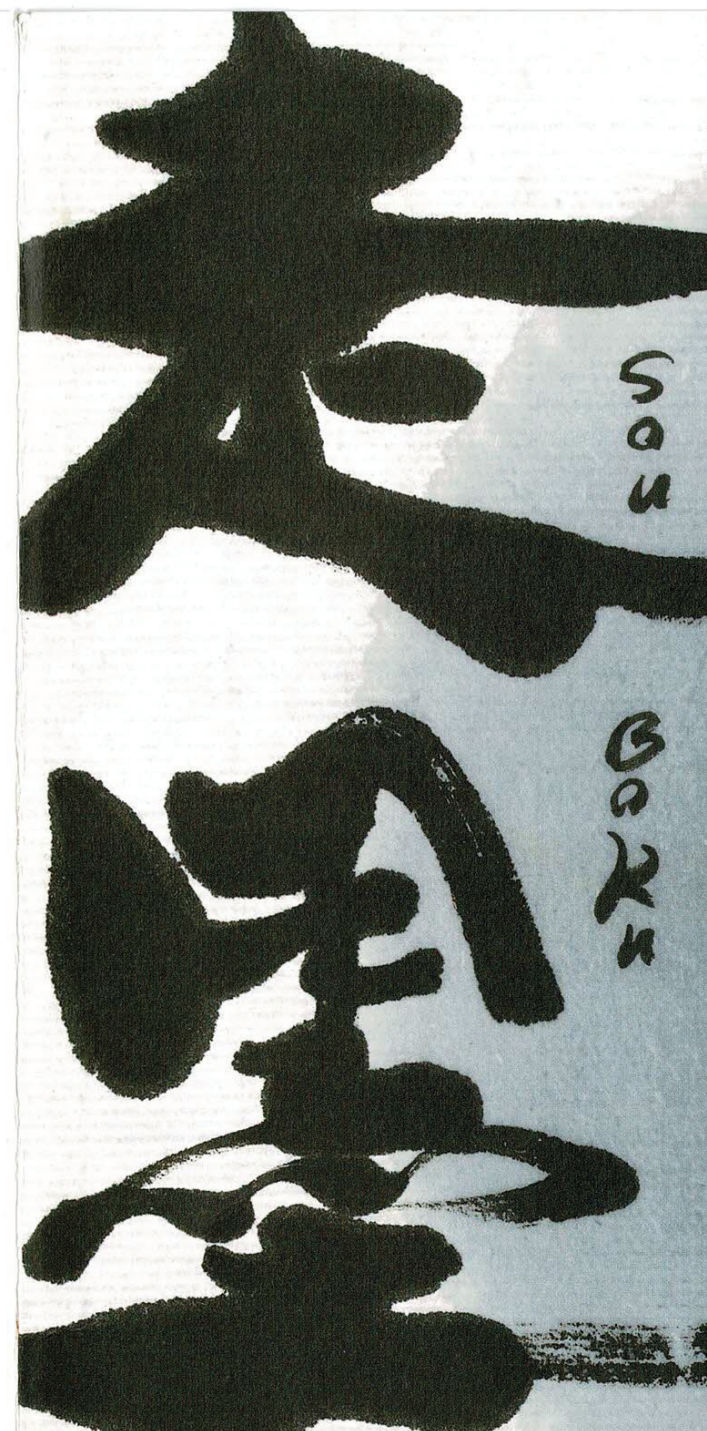 走墨
Sou
BoKu